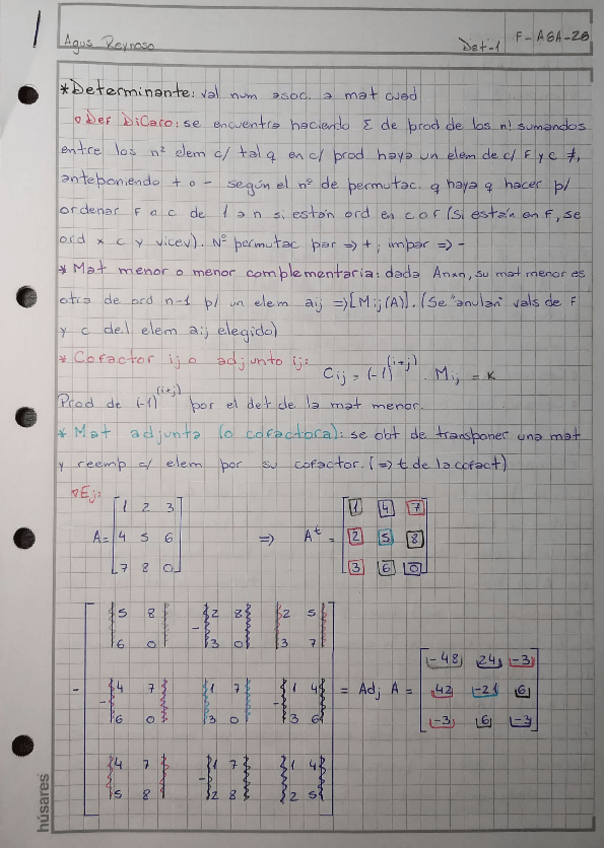 Agus Reynoso
Det-1
F-AGA-26
*Determinante: val num asoc. a mat cuad
Def DiCaro: se encuentra haciendo Σ de prod de los n! sumandos
entre los n² elem c/ tal q en c/ prod haya un elem de c/ F y c ≠,
anteponiendo + o - según el nº de permutac. q haya q hacer p/
ordenar F o c de 1 a n si están ord en c o F (si están en F, se
ord x c y vicev). Nº permutac par => +; impar => -
* Mat menor o menor complementaria: dada Anxn, su mat menor es
otra de ord n-1 p/ un elem aij => [Mij(A)]. (Se "anulan" vals de F
y c del elem aij elegido)
* Cofactor ij o adjunto ij: Cij = (-1)^(i+j) . Mij = K
Prod de (-1)^(i+j) por el det de la mat menor.
* Mat adjunta (o cofactora): se obt de transponer una mat
y reemp c/ elem por su cofactor. (=> t de la cofact)
Ej:
1 2 3 1 4 7
A= 4 5 6 => A^t = 2 5 8
7 8 0 3 6 0
5 8 - 2 8 2 5
6 0 3 0 3 7 -48 24 -3
- - 4 7 1 7 - 1 4 = Adj A = 42 -21 6
6 0 3 0 3 6 -3 6 -3
4 7 - 1 7 1 4
5 8 2 8 2 5
húsares